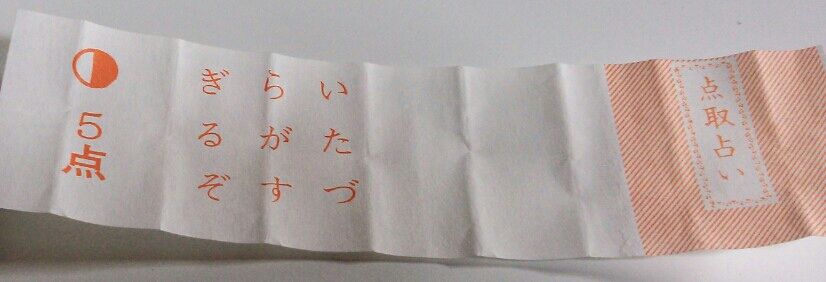 点取占い
いたづ
らがす
ぎるぞ
5点